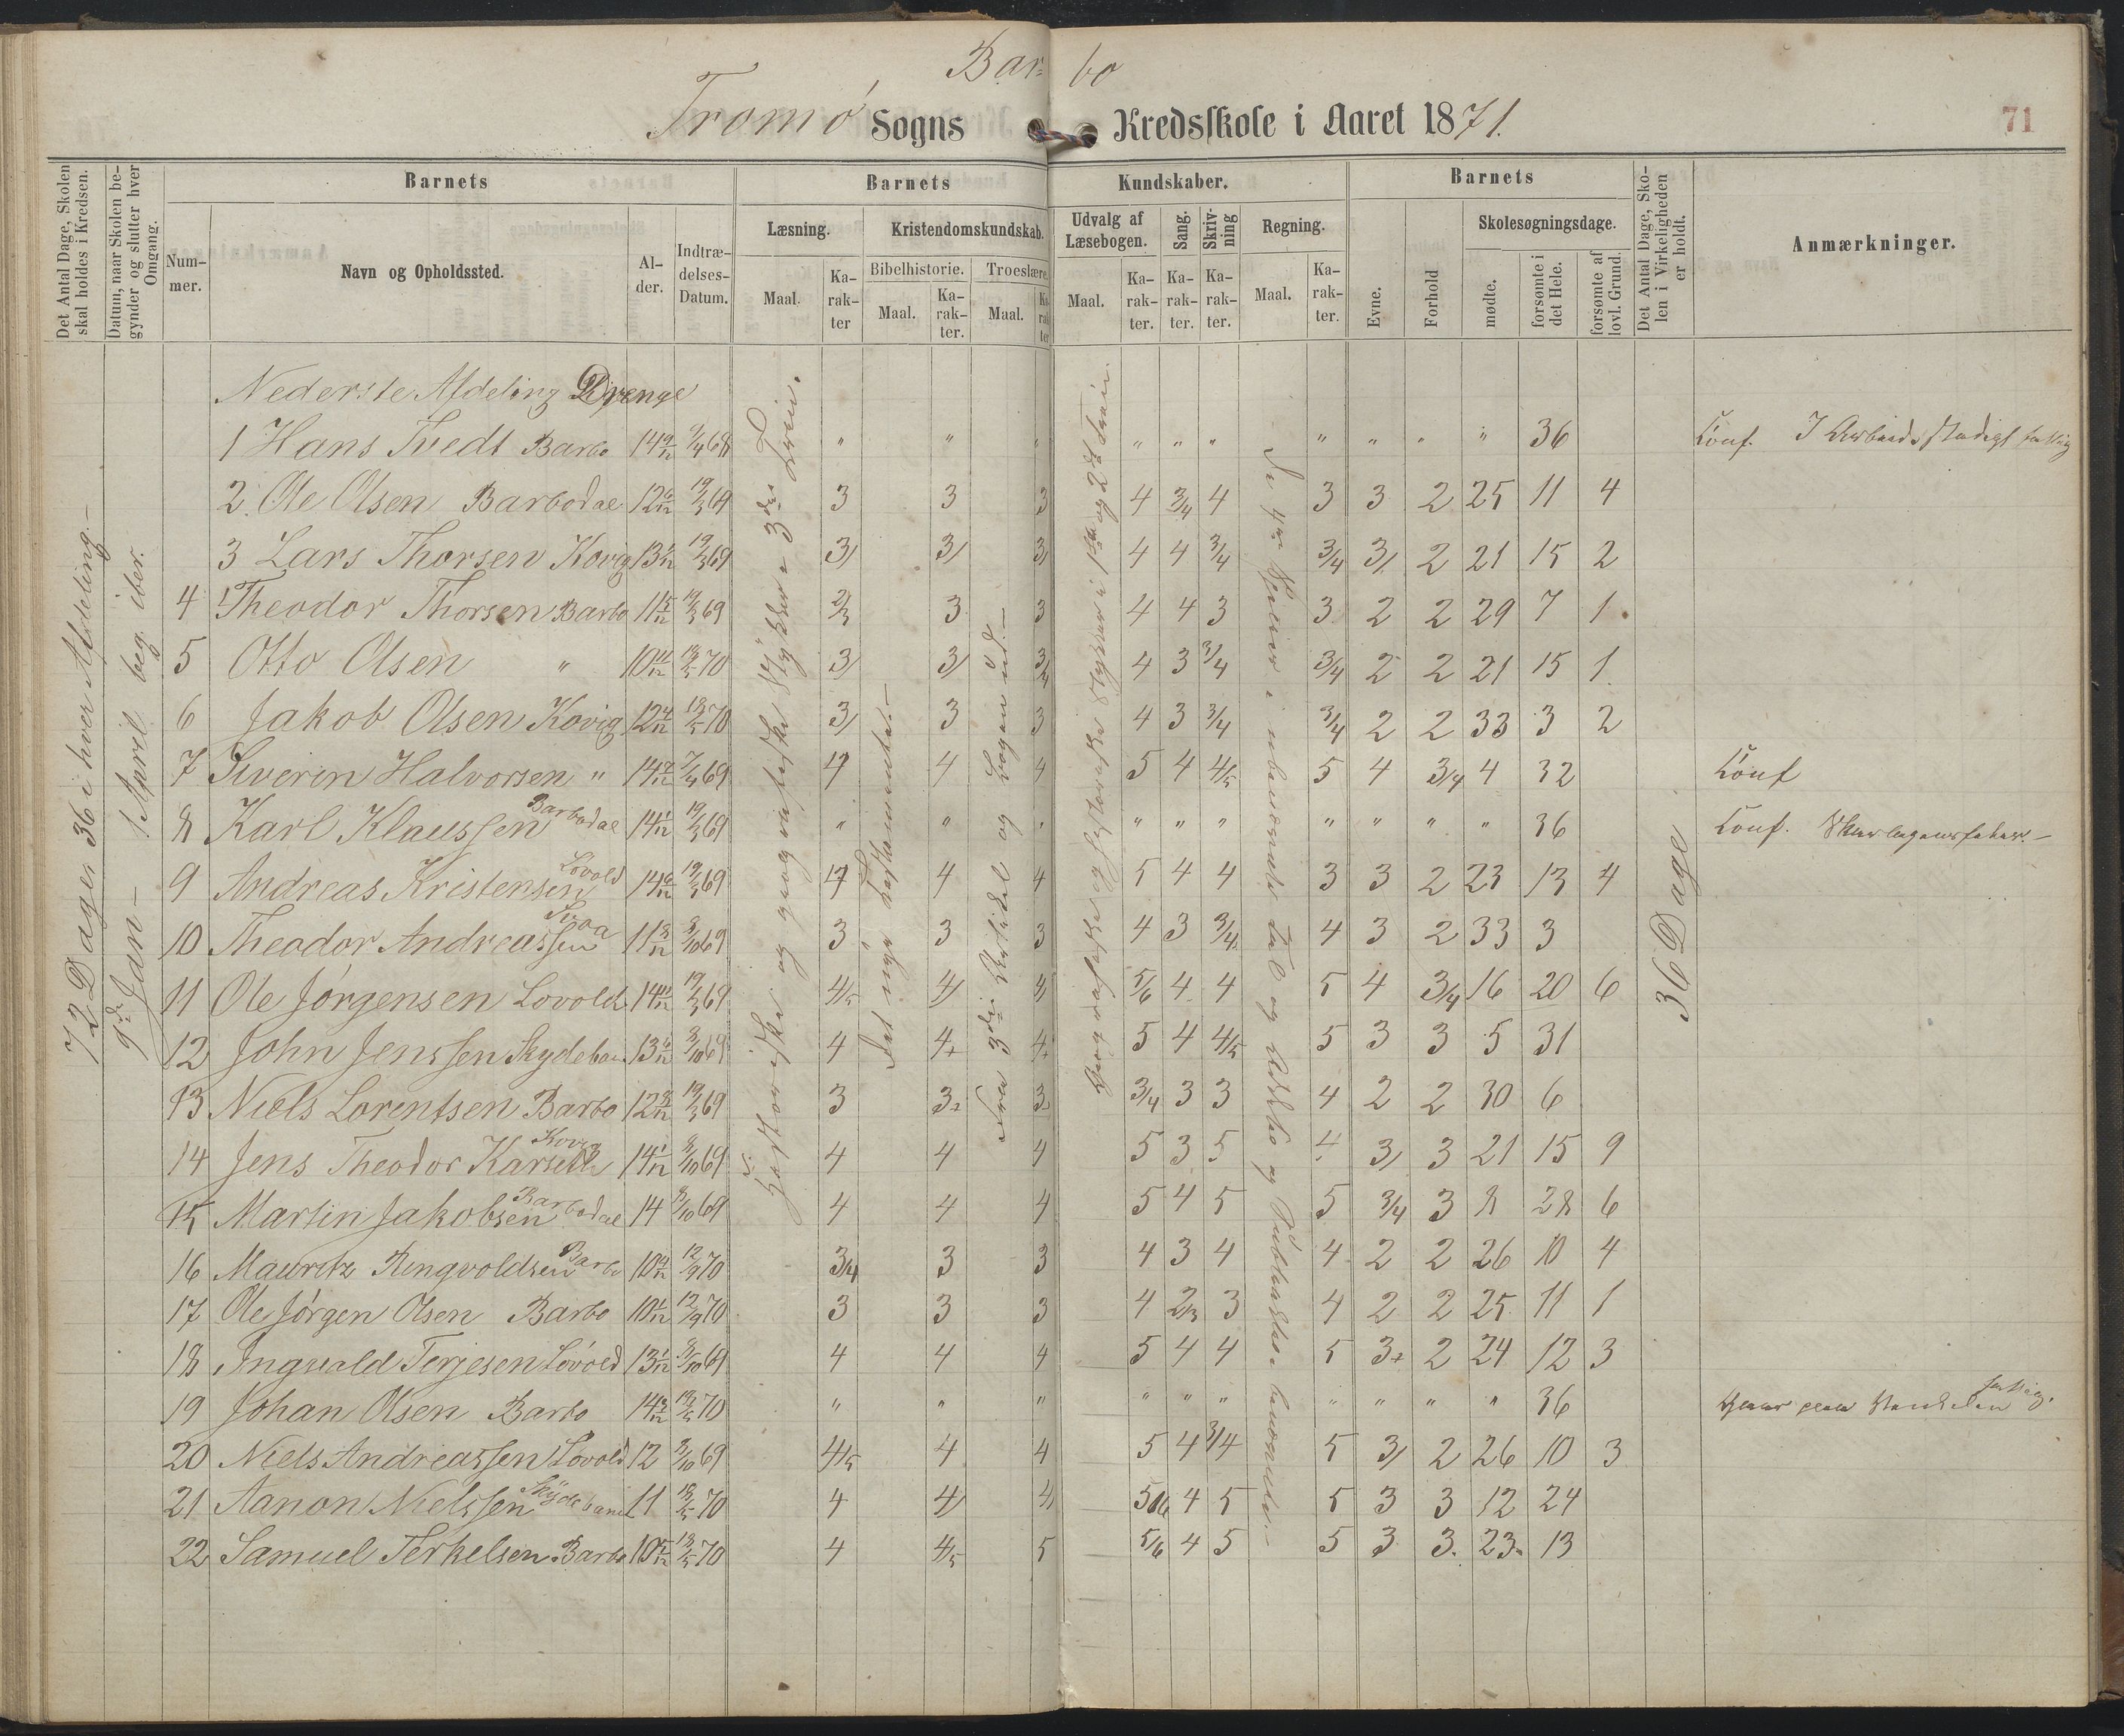 Bar- bo
Tromø Sogns Kredsskole i Aaret 1871.
71
Det Antal Dage, Skolen skal holdes i Kredsen.
Datum, naar Skolen begynder og slutter hver Omgang.
Barnets
Barnets
Kundskaber.
Barnets
Det Antal Dage, Skolen i Virkeligheden er holdt.
Anmærkninger.
Nummer.
Navn og Opholdssted.
Alder.
Indtrædelses-Datum.
Læsning.
Kristendomskundskab.
Udvalg af Læsebogen.
Sang.
Skrivning
Regning.
Evne.
Forhold
Skolesøgningsdage.
Maal.
Karakter
Bibelhistorie.
Troeslære.
Maal.
Karakter.
Maal.
Karakter
Maal.
Karakter.
Karakter.
Karakter.
Maal.
Karakter.
mødte.
forsømte i det Hele.
forsømte af lovl. Grund.
72 Dage 36 i hver Afdeling.-
9de Jan - 1 April beg. iber.
Det nye Testamente.-
Fra 3die Artikel og Bogen ud.-
36 Dage
Nederste Afdeling Drenge
1 Hans Tvedt Barbo 14 9/12 9/4 68 " " " " " " " " " " 36 Conf.
2 Ole Olsen Barbodal 12 6/12 19/3 69 3 3 3 4 3/4 4 3 3 2 25 11 4
3 Lars Thorsen Kovig 13 1/12 19/3 69 3/ 3/ 3/ 4 4 3/4 3/4 3/ 2 21 15 2
4 Theodor Thorsen Barbo 11 5/12 19/3 69 2/3 3 3 4 4 3 3 2 2 29 7 1
5 Otto Olsen " 10 11/12 70 3/ 3/ 3/4 4 3 3/4 3/4 2 2 21 15 1
6 Jakob Olsen Kovig 12 4/12 70 3/ 3 3 4 3 3/4 3/4 2 2 33 3 2
7 Siverin Halvorsen " 14 69 4 4 4 5 4 4/5 5 4 3/4 4 32 Conf
8 Karl Klaussen Barbodal 14 1/12 19/3 69 " " " " " " " " " " 36 Conf.
9 Andreas Kristensen Lovold 14 6/12 19/3 69 4 4 4 5 4 4 3 3 2 23 13 4
10 Theodor Andreassen 11 3/12 3/10 69 3 3 3 4 3 3/4 4 3 2 33 3
11 Ole Jørgensen Lovold 14 11/12 19/3 69 4/5 4/ 4/ 5/6 4 4 5 4 3/4 16 20 6
12 John Jenssen Skydeban 13 6/12 3/10 69 4 4+ 4+ 5 4 4/5 5 3 3 5 31
13 Niels Lorentsen Barbo 12 8/12 19/3 69 3 3+ 3+ 3/4 3 3 4 2 2 30 6
14 Jens Theodor Karsen Kovig 14 1/12 3/10 69 4 4 4 5 3 5 4 3/ 3 21 15 9
15 Martin Jakobsen Barbodal 14 8/10 69 4 4 4 5 4 5 5 3/4 3 8 28 6
16 Mauritz Ringvoldsen Barbo 10 4/12 12/9 70 3/4 3 3 4 3 4 4 2 2 26 10 4
17 Ole Jørgen Olsen Barbo 10 1/12 12/9 70 3 3 3 4 2/3 3 4 2 2 25 11 1
18 Ingvald Terjesen Lovold 13 1/12 3/10 69 4 4 4 5 4 4 5 3+ 2 24 12 3
19 Johan Olsen Barbo 14 70 " " " " " " " " " " 36
20 Niels Andreassen Lovold 12 3/10 69 4/5 4 4 5 4 3/4 5 3/ 2 26 10 3
21 Aanon Nielssen Skydebanen 11 70 4 4/ 4/ 5/6 4 5 5 3 3 12 24
22 Samuel Terkelsen Barbo 10 5/12 70 4 4/5 5 5/6 4 5 5 3 3 23 13